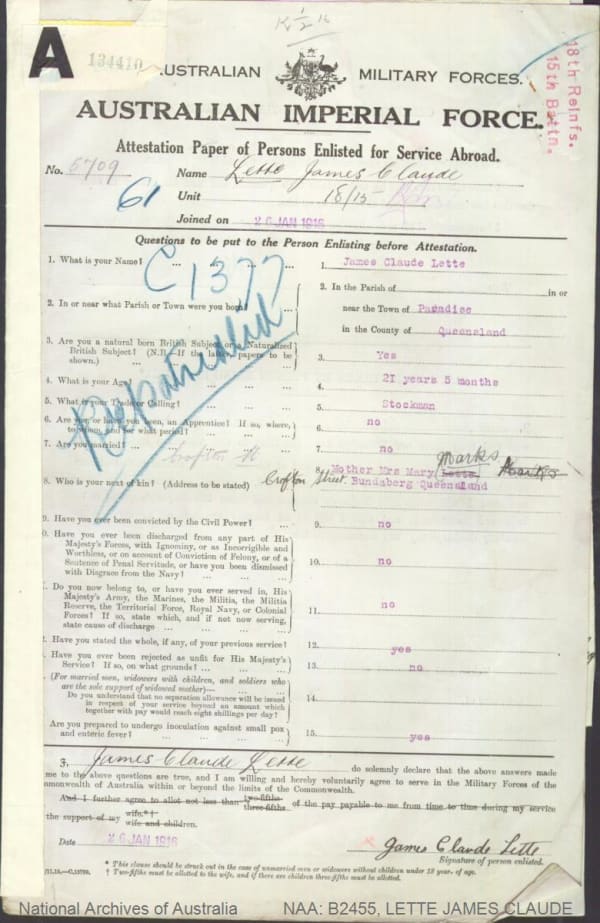 A 134410
AUSTRALIAN MILITARY FORCES.
AUSTRALIAN IMPERIAL FORCE.
18th Reinfs.
15th Battn.
Attestation Paper of Persons Enlisted for Service Abroad.
No. 5709 Name Lette James Claude
61 Unit 18/15
Joined on 26 JAN 1916
Questions to be put to the Person Enlisting before Attestation.
C 1377
Repatriated
1. What is your Name? ... 1. James Claude Lette
2. In or near what Parish or Town were you born? 2. In the Parish of in or
near the Town of Paradise
in the County of Queensland
3. Are you a natural born British Subject or a Naturalized
British Subject? (N.B.—If the latter, papers to be
shown.) ... 3. Yes
4. What is your Age? 4. 21 years 5 months
5. What is your Trade or Calling? 5. Stockman
6. Are you, or have you been, an Apprentice? If so, where,
to whom, and for what period? 6. no
7. Are you married? ... Crofton St 7. no
8. Who is your next of kin? (Address to be stated) 8. Mother Mrs Mary Lette Marks Marks
Crofton Street. Bundaberg Queensland
9. Have you ever been convicted by the Civil Power? 9. no
0. Have you ever been discharged from any part of His
Majesty's Forces, with Ignominy, or as Incorrigible and
Worthless, or on account of Conviction of Felony, or of a
Sentence of Penal Servitude, or have you been dismissed
with Disgrace from the Navy? 10. no
Do you now belong to, or have you ever served in, His
Majesty's Army, the Marines, the Militia, the Militia
Reserve, the Territorial Force, Royal Navy, or Colonial
Forces? If so, state which, and if not now serving,
state cause of discharge 11. no
Have you stated the whole, if any, of your previous service? 12. yes
Have you ever been rejected as unfit for His Majesty's
Service? If so, on what grounds? 13. no
(For married men, widowers with children, and soldiers who
are the sole support of widowed mother)—
Do you understand that no separation allowance will be issued
in respect of your service beyond an amount which
together with pay would reach eight shillings per day? 14.
Are you prepared to undergo inoculation against small pox
and enteric fever? 15. yes
3, James Claude Lette do solemnly declare that the above answers made
me to the above questions are true, and I am willing and hereby voluntarily agree to serve in the Military Forces of the
mmonwealth of Australia within or beyond the limits of the Commonwealth.
And I further agree to allot not less than two-fifths three-fifths of the pay payable to me from time to time during my service
the support of my wife.*† wife and children.
Date 26 JAN 1916
James Claude Lette
Signature of person enlisted.
* This clause should be struck out in the case of unmarried men or widowers without children under 18 year. of age.
† Two-fifths must be allotted to the wife, and if there are children three-fifths must be allotted.
National Archives of Australia NAA: B2455, LETTE JAMES CLAUDE